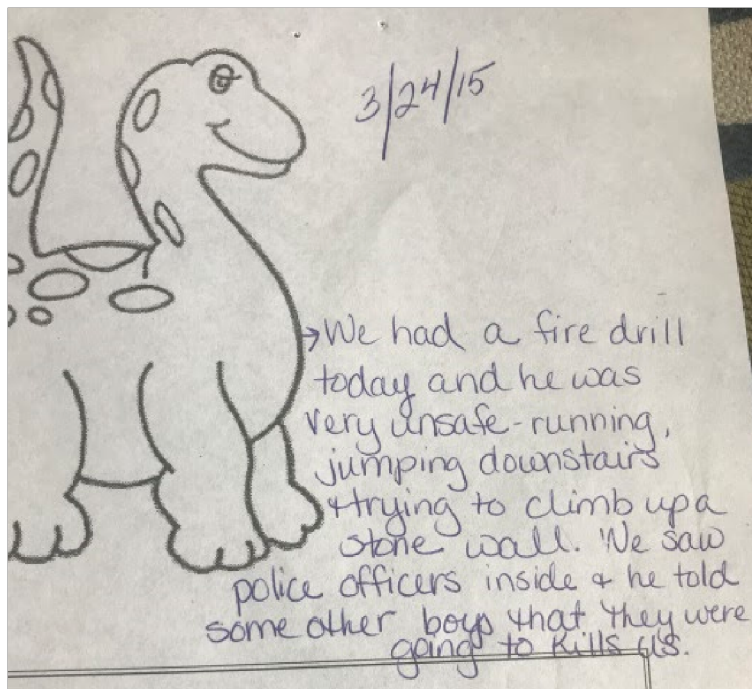 3/24/15
→We had a fire drill
today and he was
very unsafe-running,
jumping downstairs
& trying to climb up a
stone wall. We saw
police officers inside & he told
some other boys that they were
going to kills us.